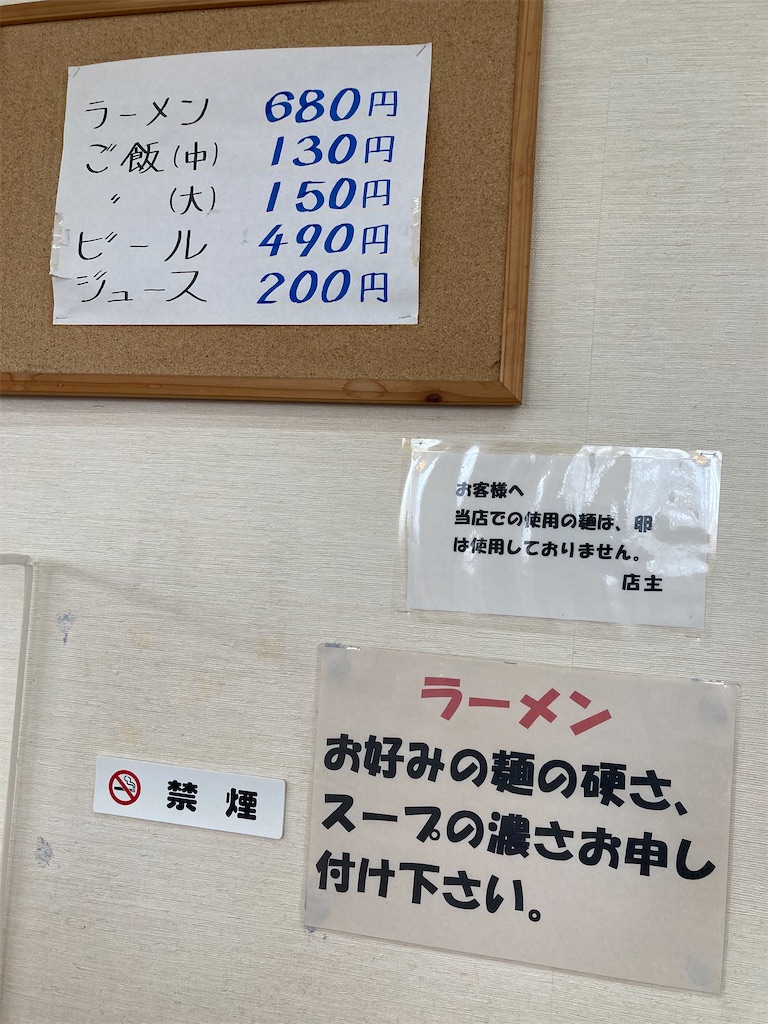 ラーメン 680円
ご飯(中) 130円
〃 (大) 150円
ビール 490円
ジュース 200円
お客様へ
当店での使用の麺は、卵
は使用しておりません。
店主
ラーメン
お好みの麺の硬さ、
スープの濃さお申し
付け下さい。
禁煙